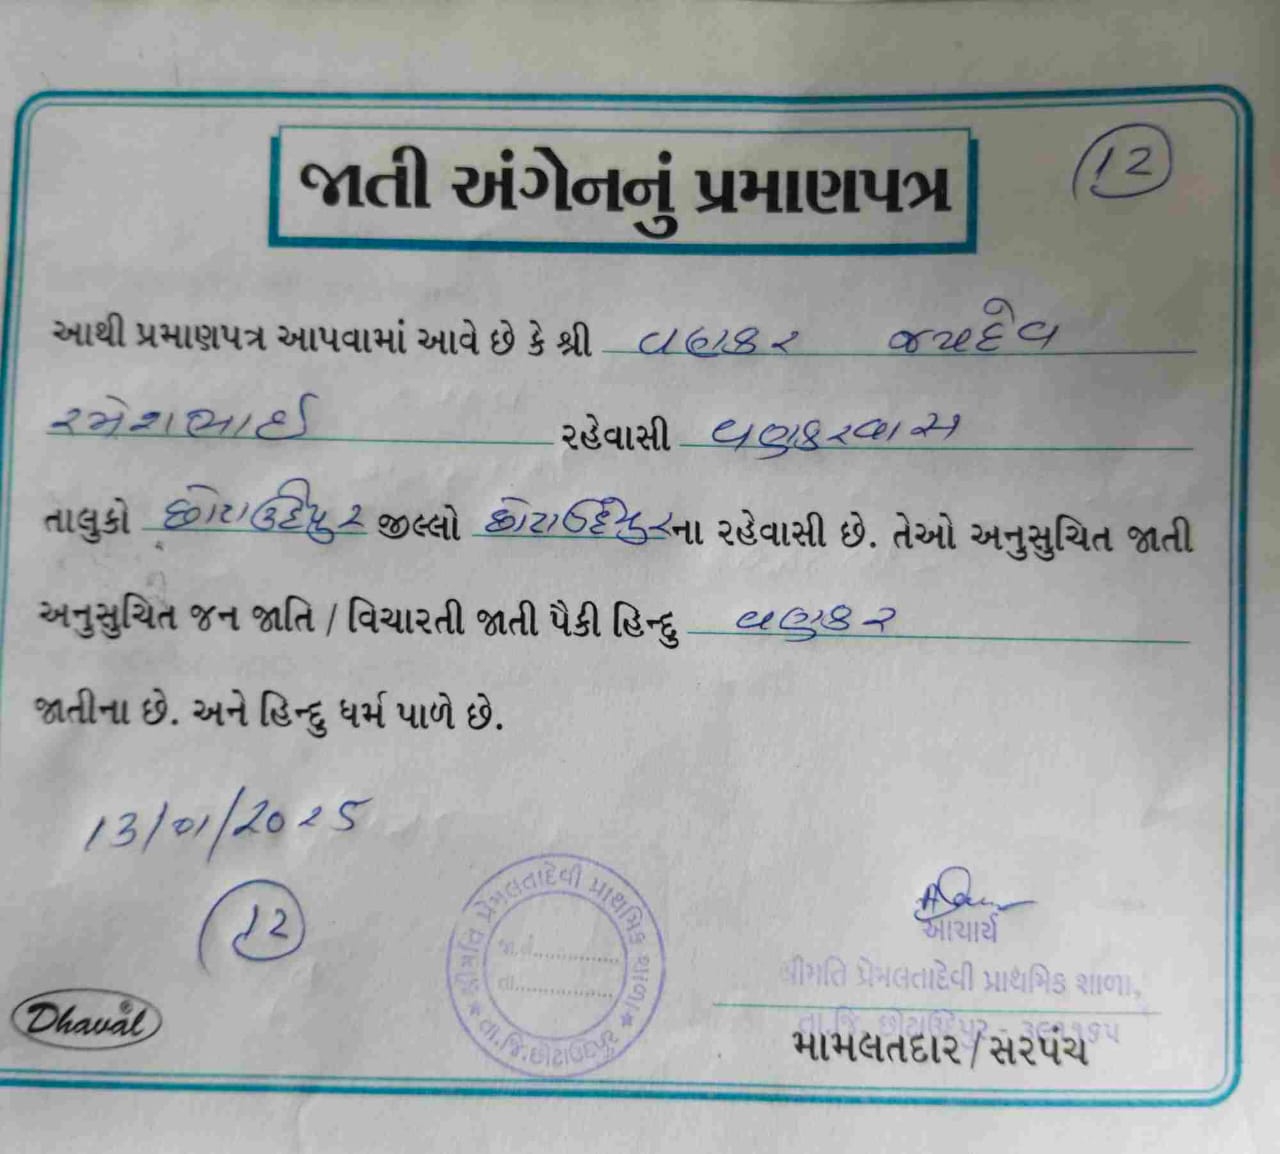 જાતી અંગેનનું પ્રમાણપત્ર
12
આથી પ્રમાણપત્ર આપવામાં આવે છે કે શ્રી વણકર જયદેવ
રમેશભાઈ રહેવાસી વણકરવાસ
તાલુકો છોટાઉદેપુર જીલ્લો છોટાઉદેપુરના રહેવાસી છે. તેઓ અનુસુચિત જાતી
અનુસુચિત જન જાતિ / વિચારતી જાતી પૈકી હિન્દુ વણકર
જાતીના છે. અને હિન્દુ ધર્મ પાળે છે.
13/01/2025
12
Dhaval
શ્રીમતિ પ્રેમલતાદેવી પ્રાથમિક શાળા
જા.નં.
તા.
તા.જિ.છોટાઉદેપુર
આચાર્ય
શ્રીમતિ પ્રેમલતાદેવી પ્રાથમિક શાળા,
તા.જિ. છોટાઉદેપુર - ૩૯૧૧૬૫
મામલતદાર / સરપંચ